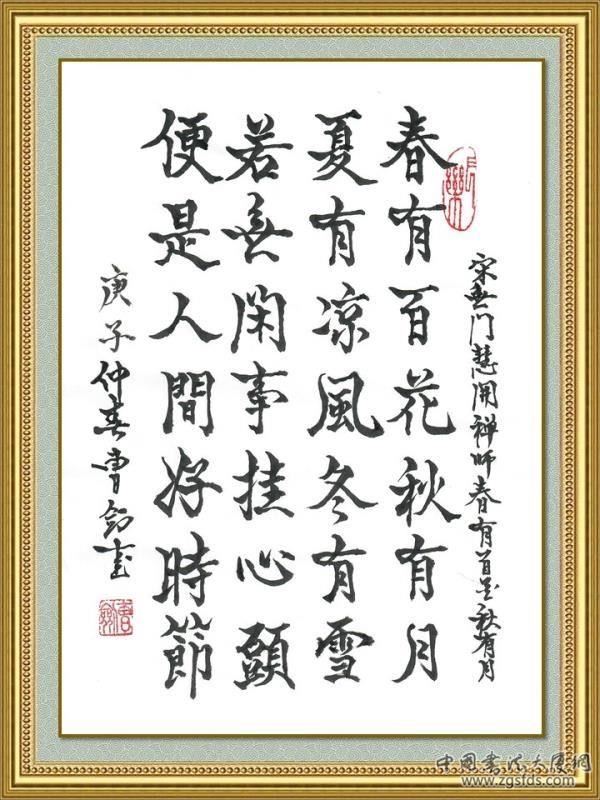 宋無门慧開禅师春有百花秋有月
春有百花秋有月
夏有凉風冬有雪
若無闲事挂心頭
便是人間好時節
庚子仲春曹剑書
中国書法大厦網
www.zgsfds.com